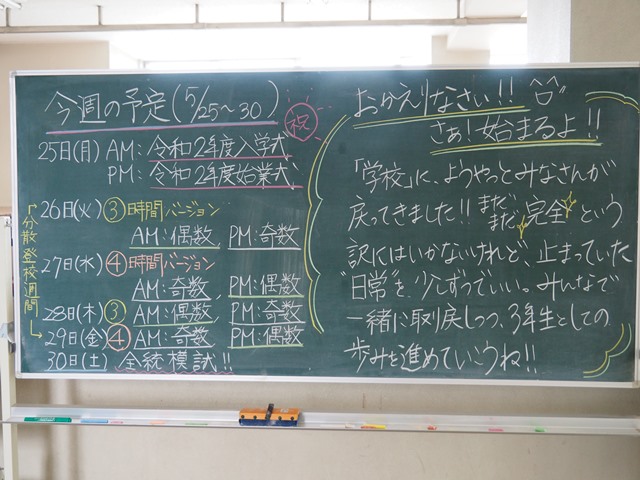 今週の予定(5/25~30)
祝
25日(月) AM:令和2年度入学式
PM:令和2年度始業式
分散登校週間
26日(火) ③時間バージョン
AM:偶数 PM:奇数
27日(水) ④時間バージョン
AM:奇数, PM:偶数
28日(木) ③ AM:偶数 PM:奇数
29日(金) ④ AM:奇数 PM:偶数
30日(土) 全統模試!!
おかえりなさい!!
さぁ!始まるよ!!
「学校」に、ようやっとみなさんが
戻ってきました!! まだまだ完全という
訳にはいかないけれど、止まっていた
"日常"を少しずつでいい。みんなで
一緒に取り戻しつつ、3年生としての
歩みを進めていこうね!!